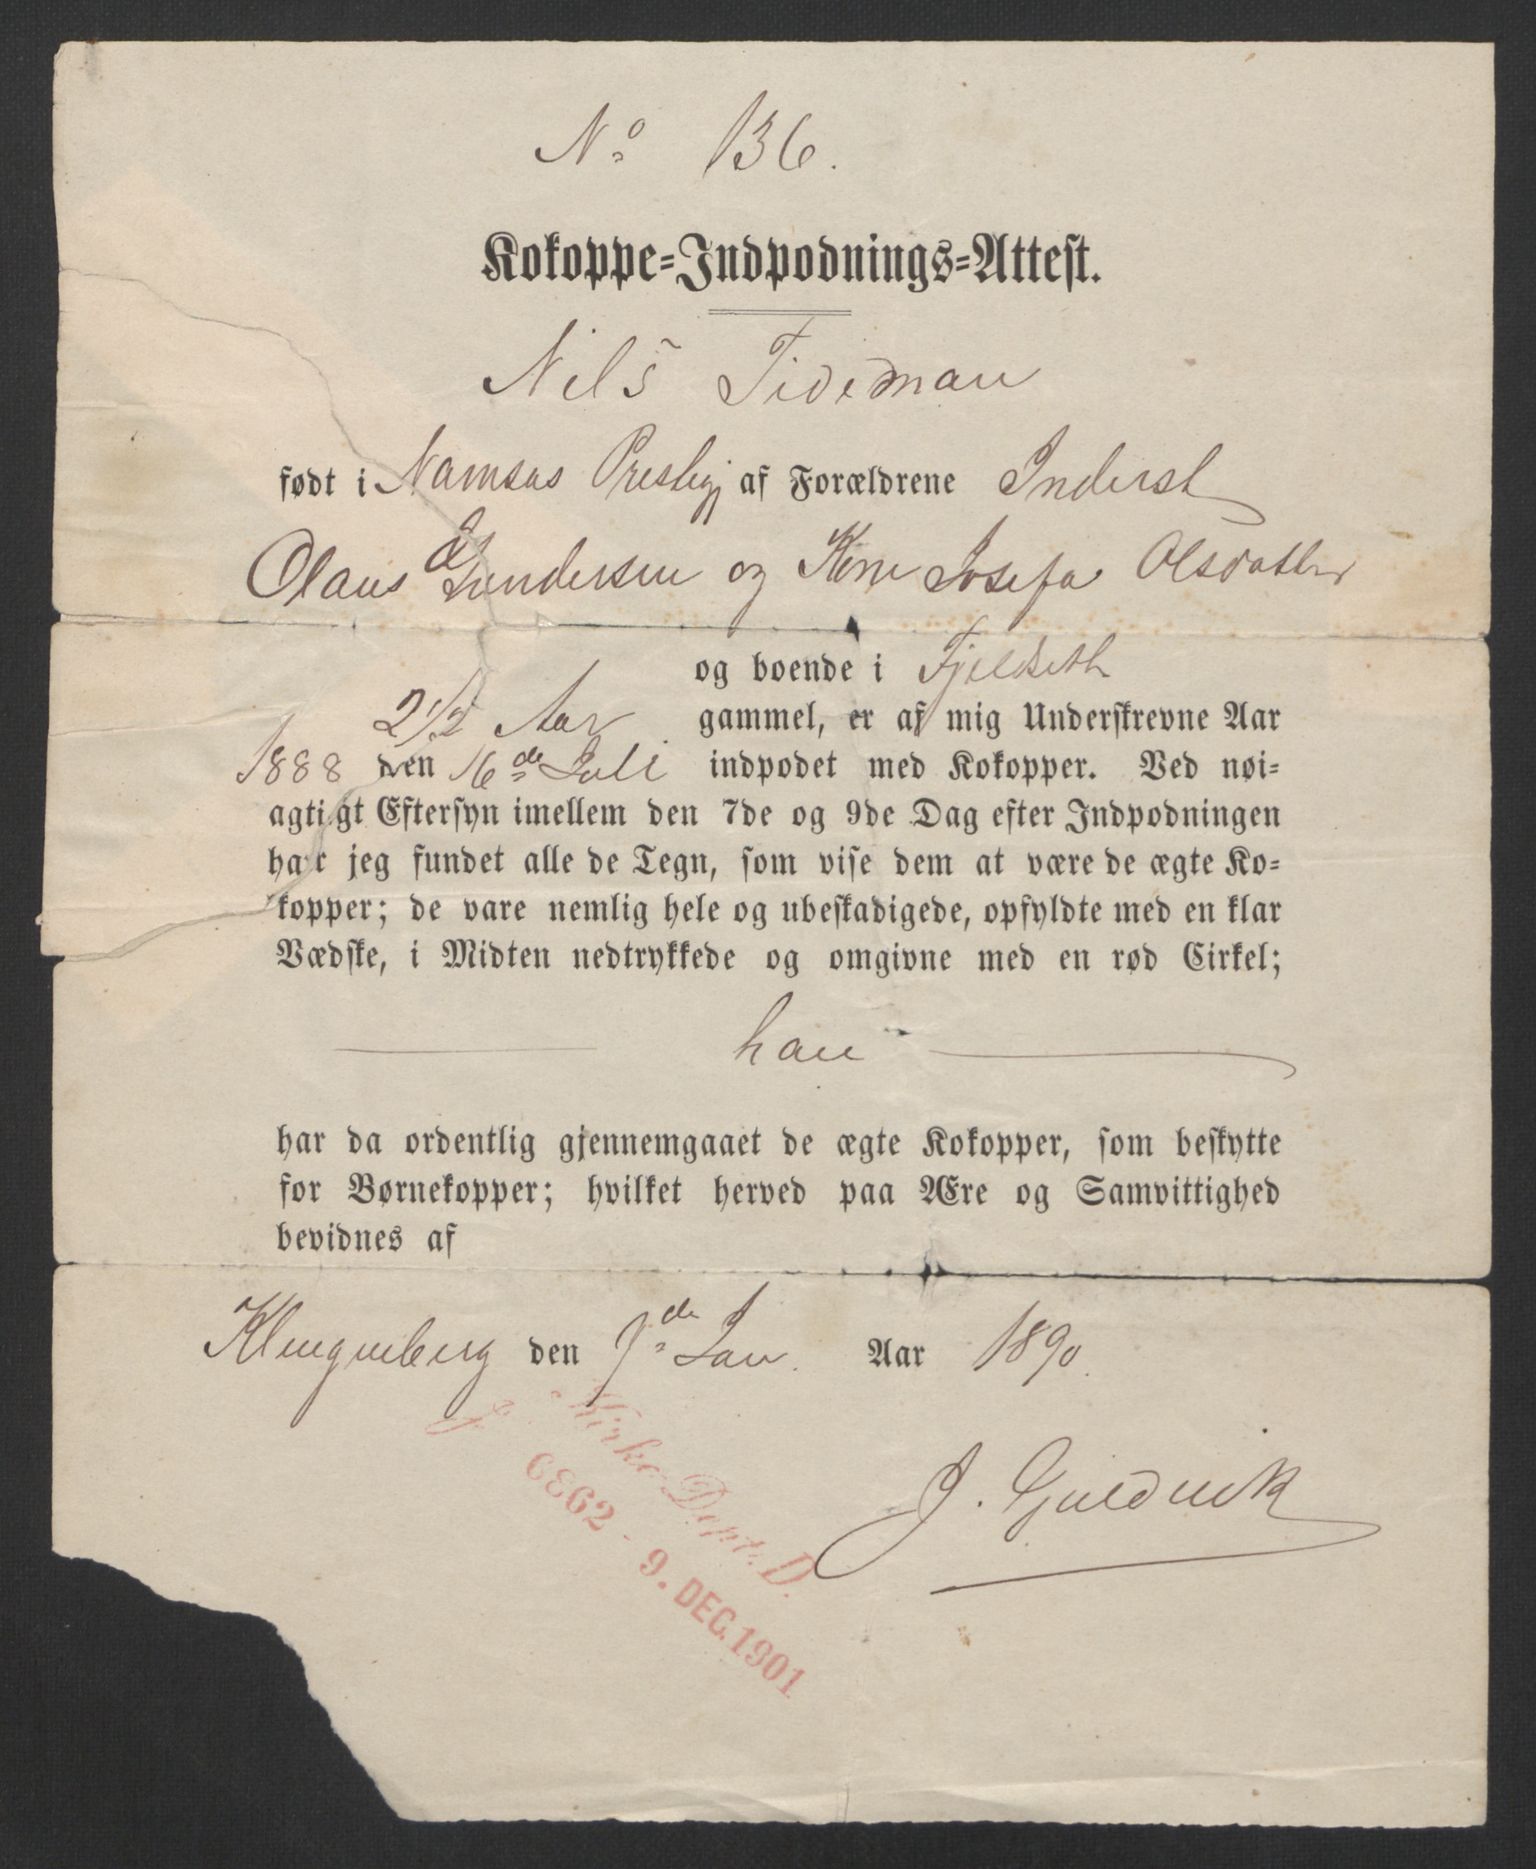 No 136.
Kokoppe-Indpodnings-Attest.
Nils Tideman
født i Namsos Prestegj af Forældrene Inderst
Olaus Gundersen og Kone Josefa Olsdatter
og boende i Fjeldseth
2 1/2 Aar gammel, er af mig Underskrevne Aar
1888 den 16de Juli indpodet med Kokopper. Ved nøi-
agtigt Eftersyn imellem den 7de og 9de Dag efter Indpodningen
har jeg fundet alle de Tegn, som vise dem at være de ægte Ko-
kopper; de vare nemlig hele og ubeskadigede, opfyldte med en klar
Vædske, i Midten nedtrykkede og omgivne med en rød Cirkel;
han
har da ordentlig gjennemgaaet de ægte Kokopper, som beskytte
for Børnekopper; hvilket herved paa Ære og Samvittighed
bevidnes af
Klingenberg den de Jan. Aar 1890.
J.
Kirke-Dept. D.
6862 - 9. DEC. 1901